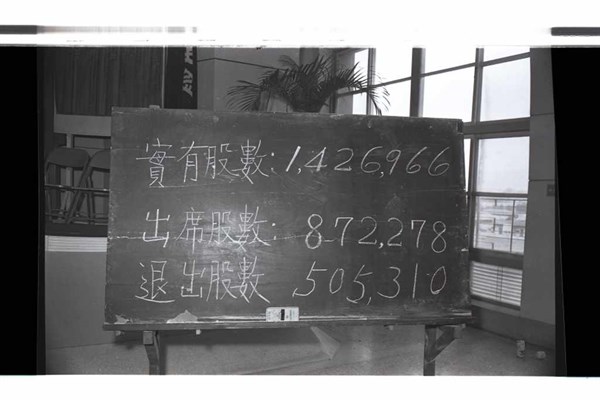 實有股數:1,426,966
出席股數:872,278
退出股數 505,310